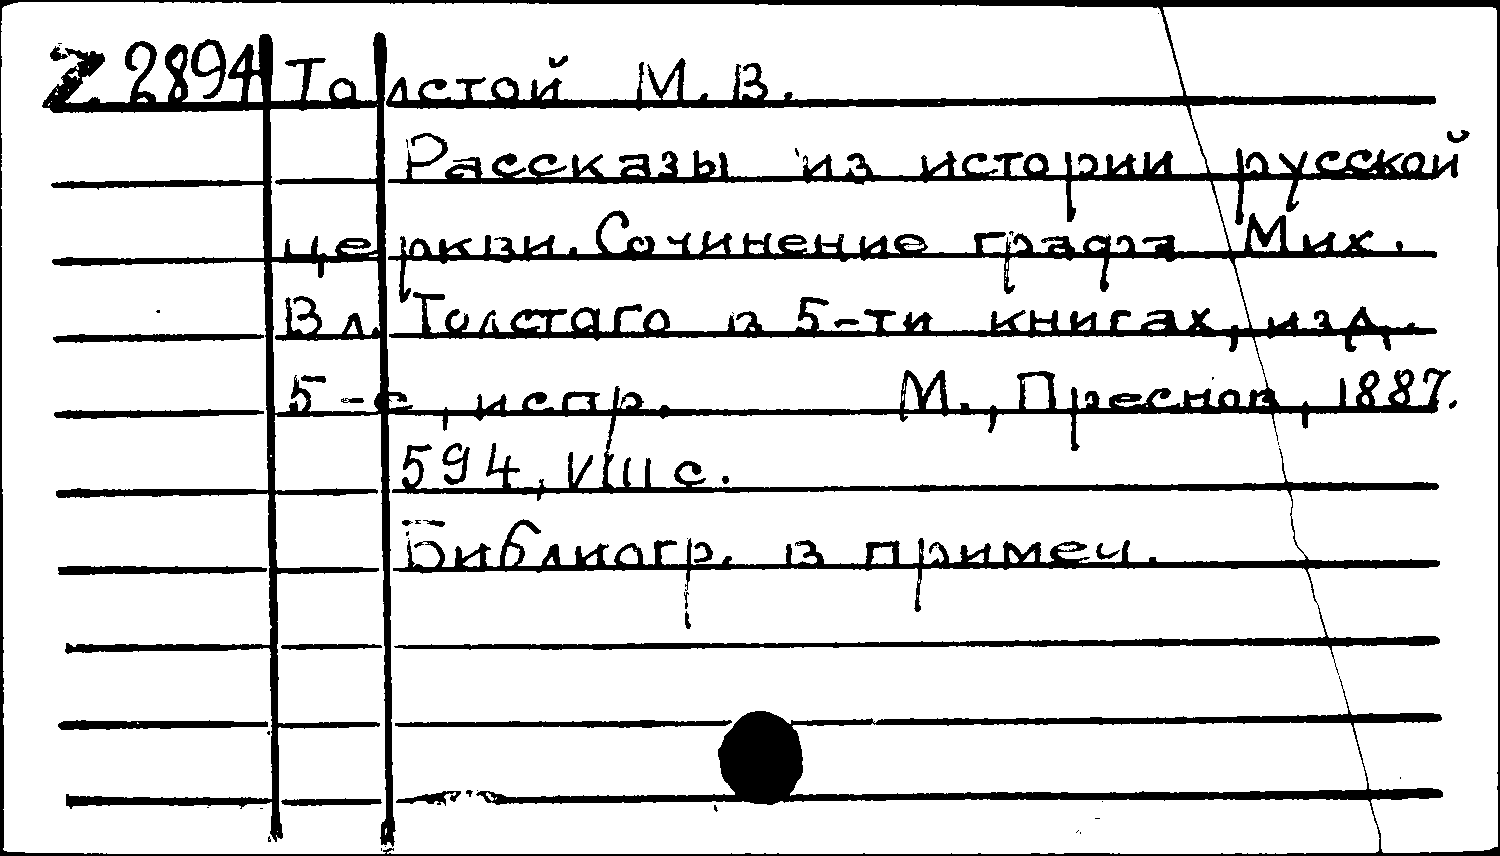 Z 2894 Толстой М. В.
Рассказы из истории русской
церкви. Сочинение графа Мих.
Вл. Толстаго в 5-ти книгах, изд.
5-е, испр. М., Преснов, 1887.
594, VIII с.
Библиогр. в примеч.